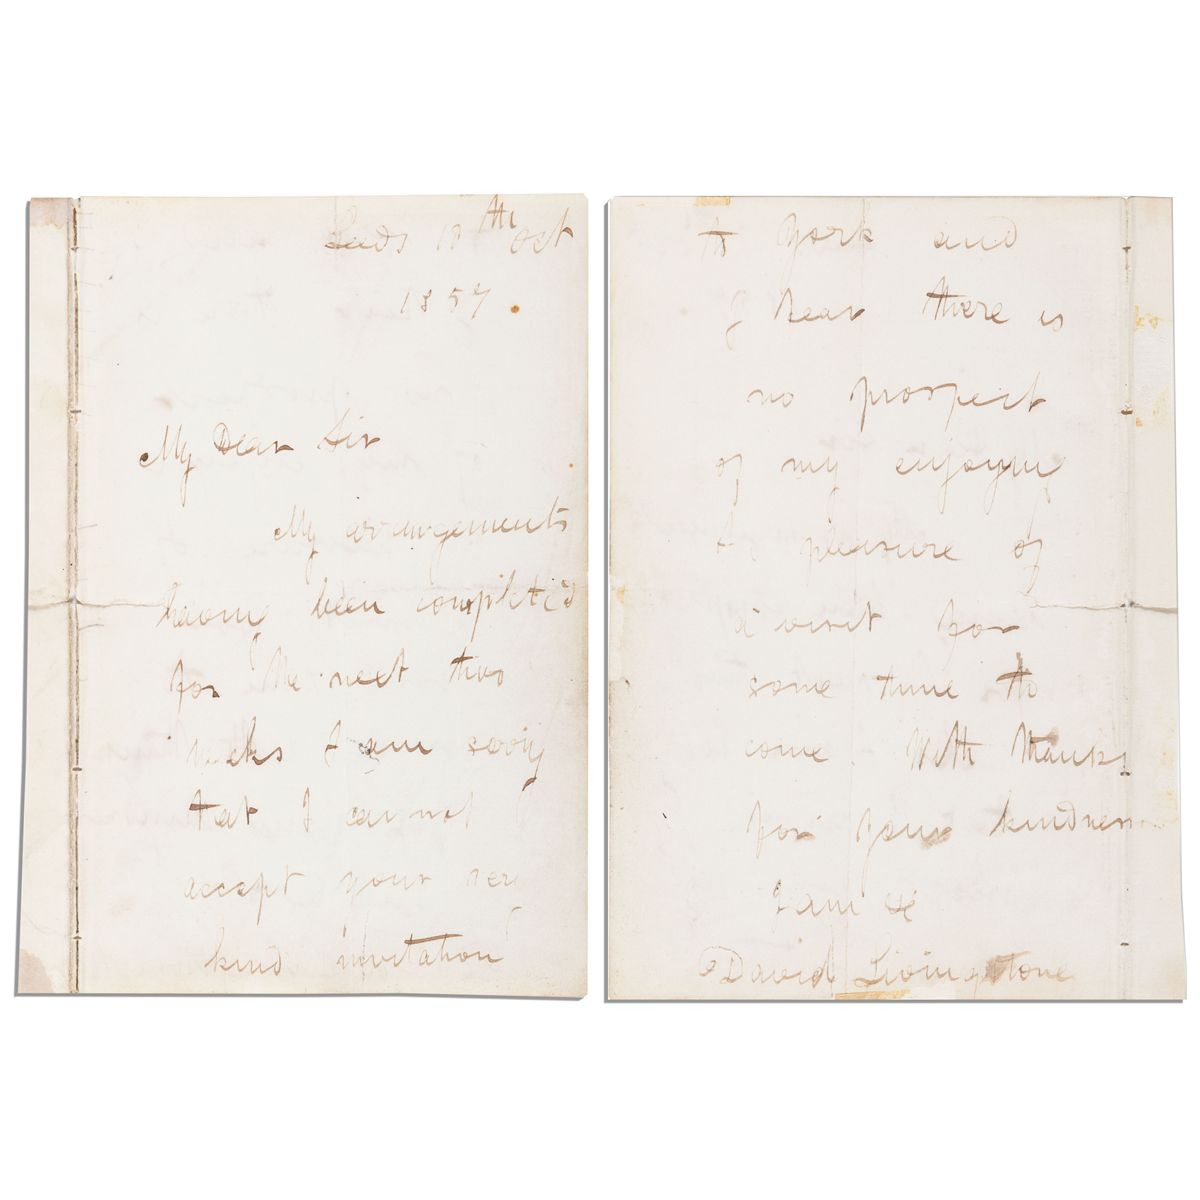 Leeds 10th Oct
1857.
My Dear Sir
My arrangements
having been completed
for the next two
weeks I am sorry
tat I can not
accept your very
kind invitation
to York and
I hear there is
no prospect
of my enjoying
the pleasure of
a visit for
some time to
come. With thanks
for your kindness
I am &c
David Livingstone